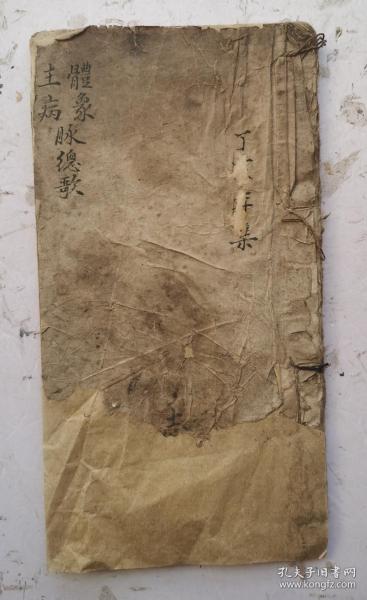 丁
集
體象
主病
脉總歌
孔夫子旧书网
www.kongfz.com